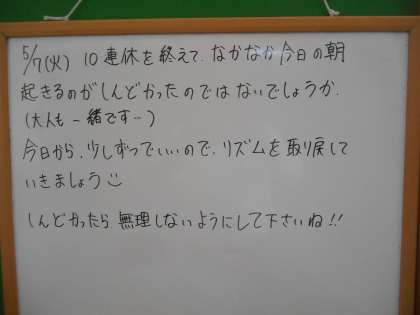 5/7(火) 10連休を終えて、なかなか今日の朝
起きるのがしんどかったのではないでしょうか.
(大人も一緒です…)
今日から、少しずつでいいので、リズムを取り戻して
いきましょう
しんどかったら無理しないようにして下さいね!!